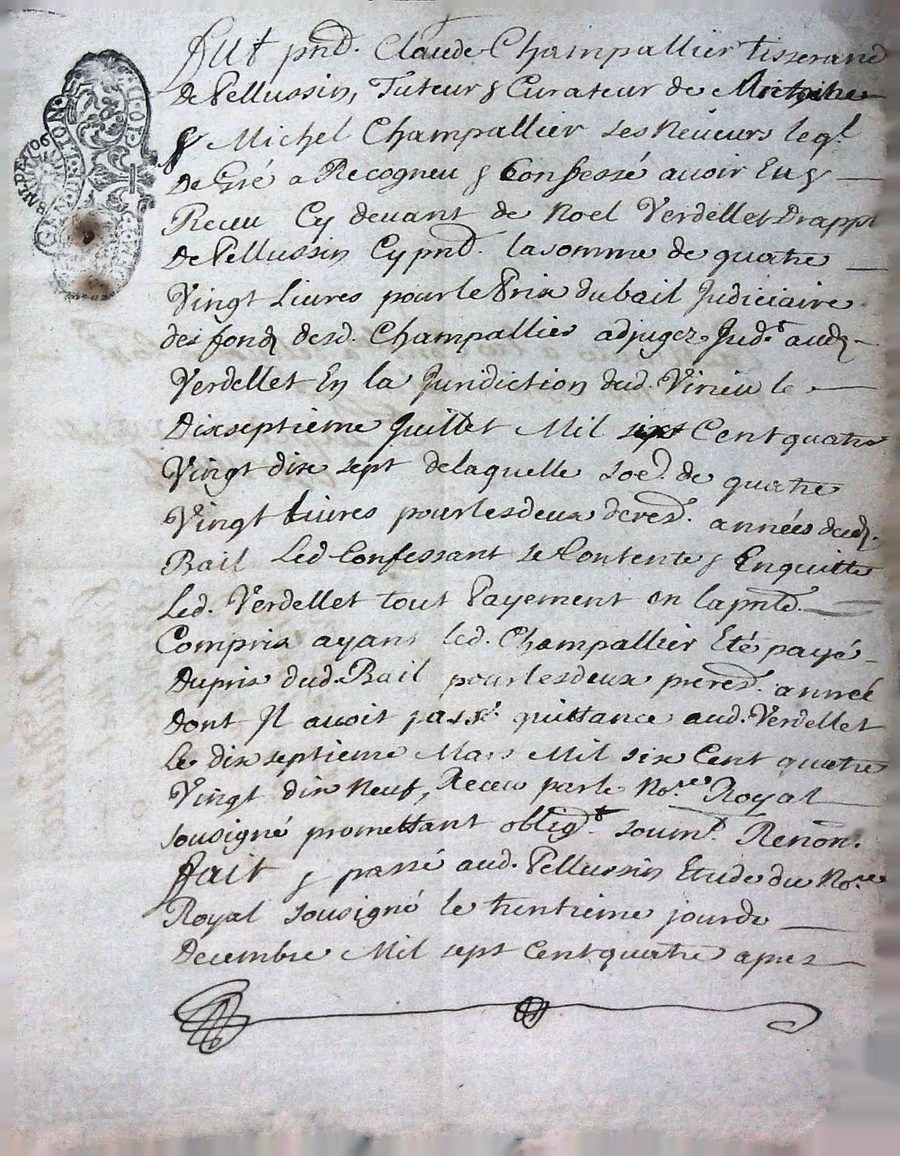 Fut pnd. Claude Champallier tisserand
de Pellussin, Tuteur & Curateur de
& Michel Champallier ses Neveurs leql.
de Gré a Recogneu & Confessé avoir Eu &
Receu Cy devant de Noel Verdellet Drappr
de Pellussin Cy pnd. la somme de quatre
Vingt Livres pour le Prix du bail Judiciaire
des fondz desd. Champallier adjugez Judt. audz
Verdellet En la Juridiction dud. Virieu le
Dixseptieme Juillet Mil six Cent quatre
Vingt dix sept de laquelle soe. de quatre
Vingt Livres pour les deux deres. années dud.
Bail Led. Confessant se Contente & Enquitte
Led. Verdellet tout Payement En la pnte.
Compris ayant led. Champallier Eté payé
du prix dud. Bail pour les deux preres. année
dont Il avoit passé quittance aud. Verdellet
Le dix septieme Mars Mil six Cent quatre
Vingt dix Neuf, Receu par le Nore Royal
sousigné promettant obligt. soumt. Renon.
fait & passé aud. Pellussin Etude du Nore
Royal sousigné le trentieme jour de
Decembre Mil sept Cent quatre apres